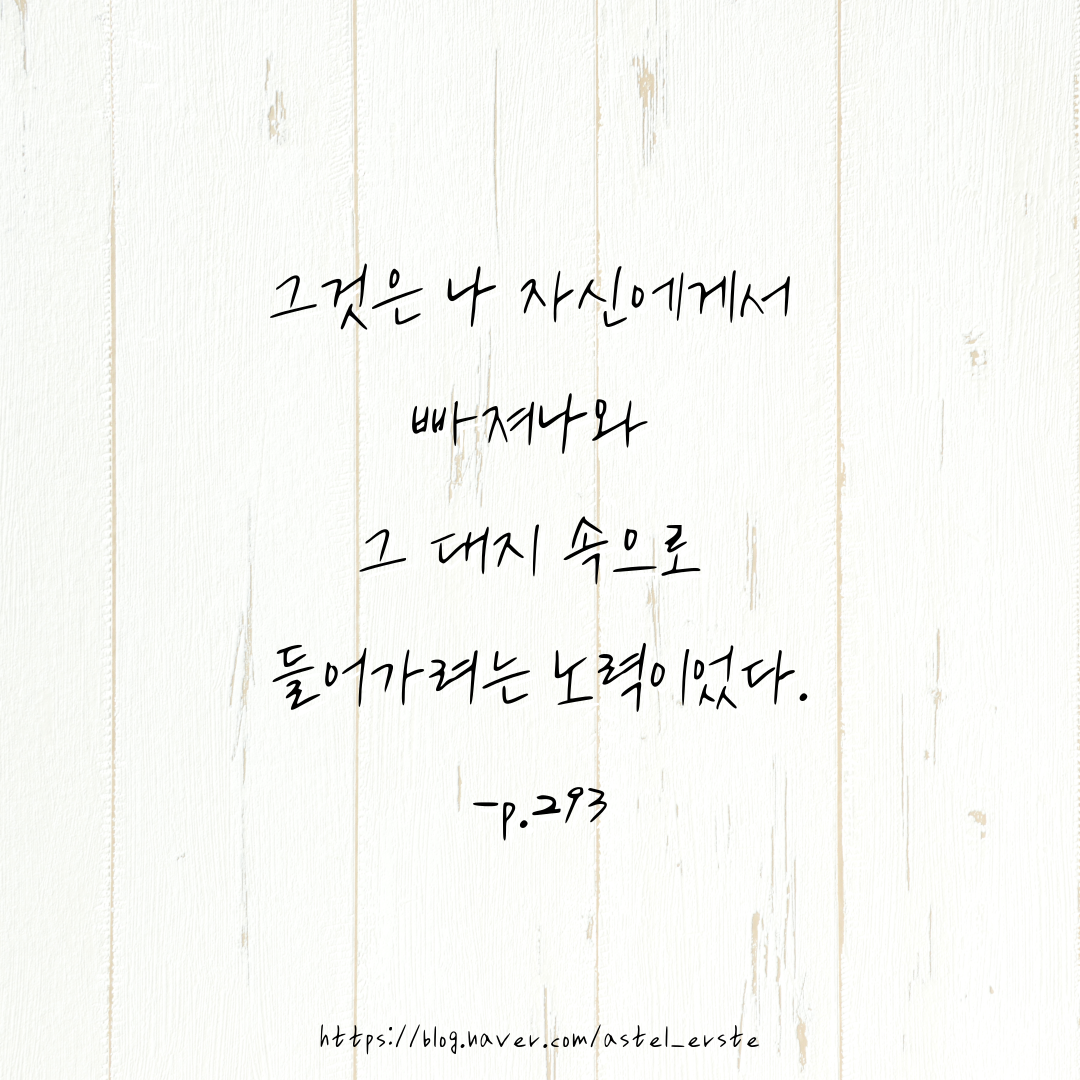 그것은 나 자신에게서
빠져나와
그 대지 속으로
들어가려는 노력이었다.
-p.293
https://blog.naver.com/astel_erste